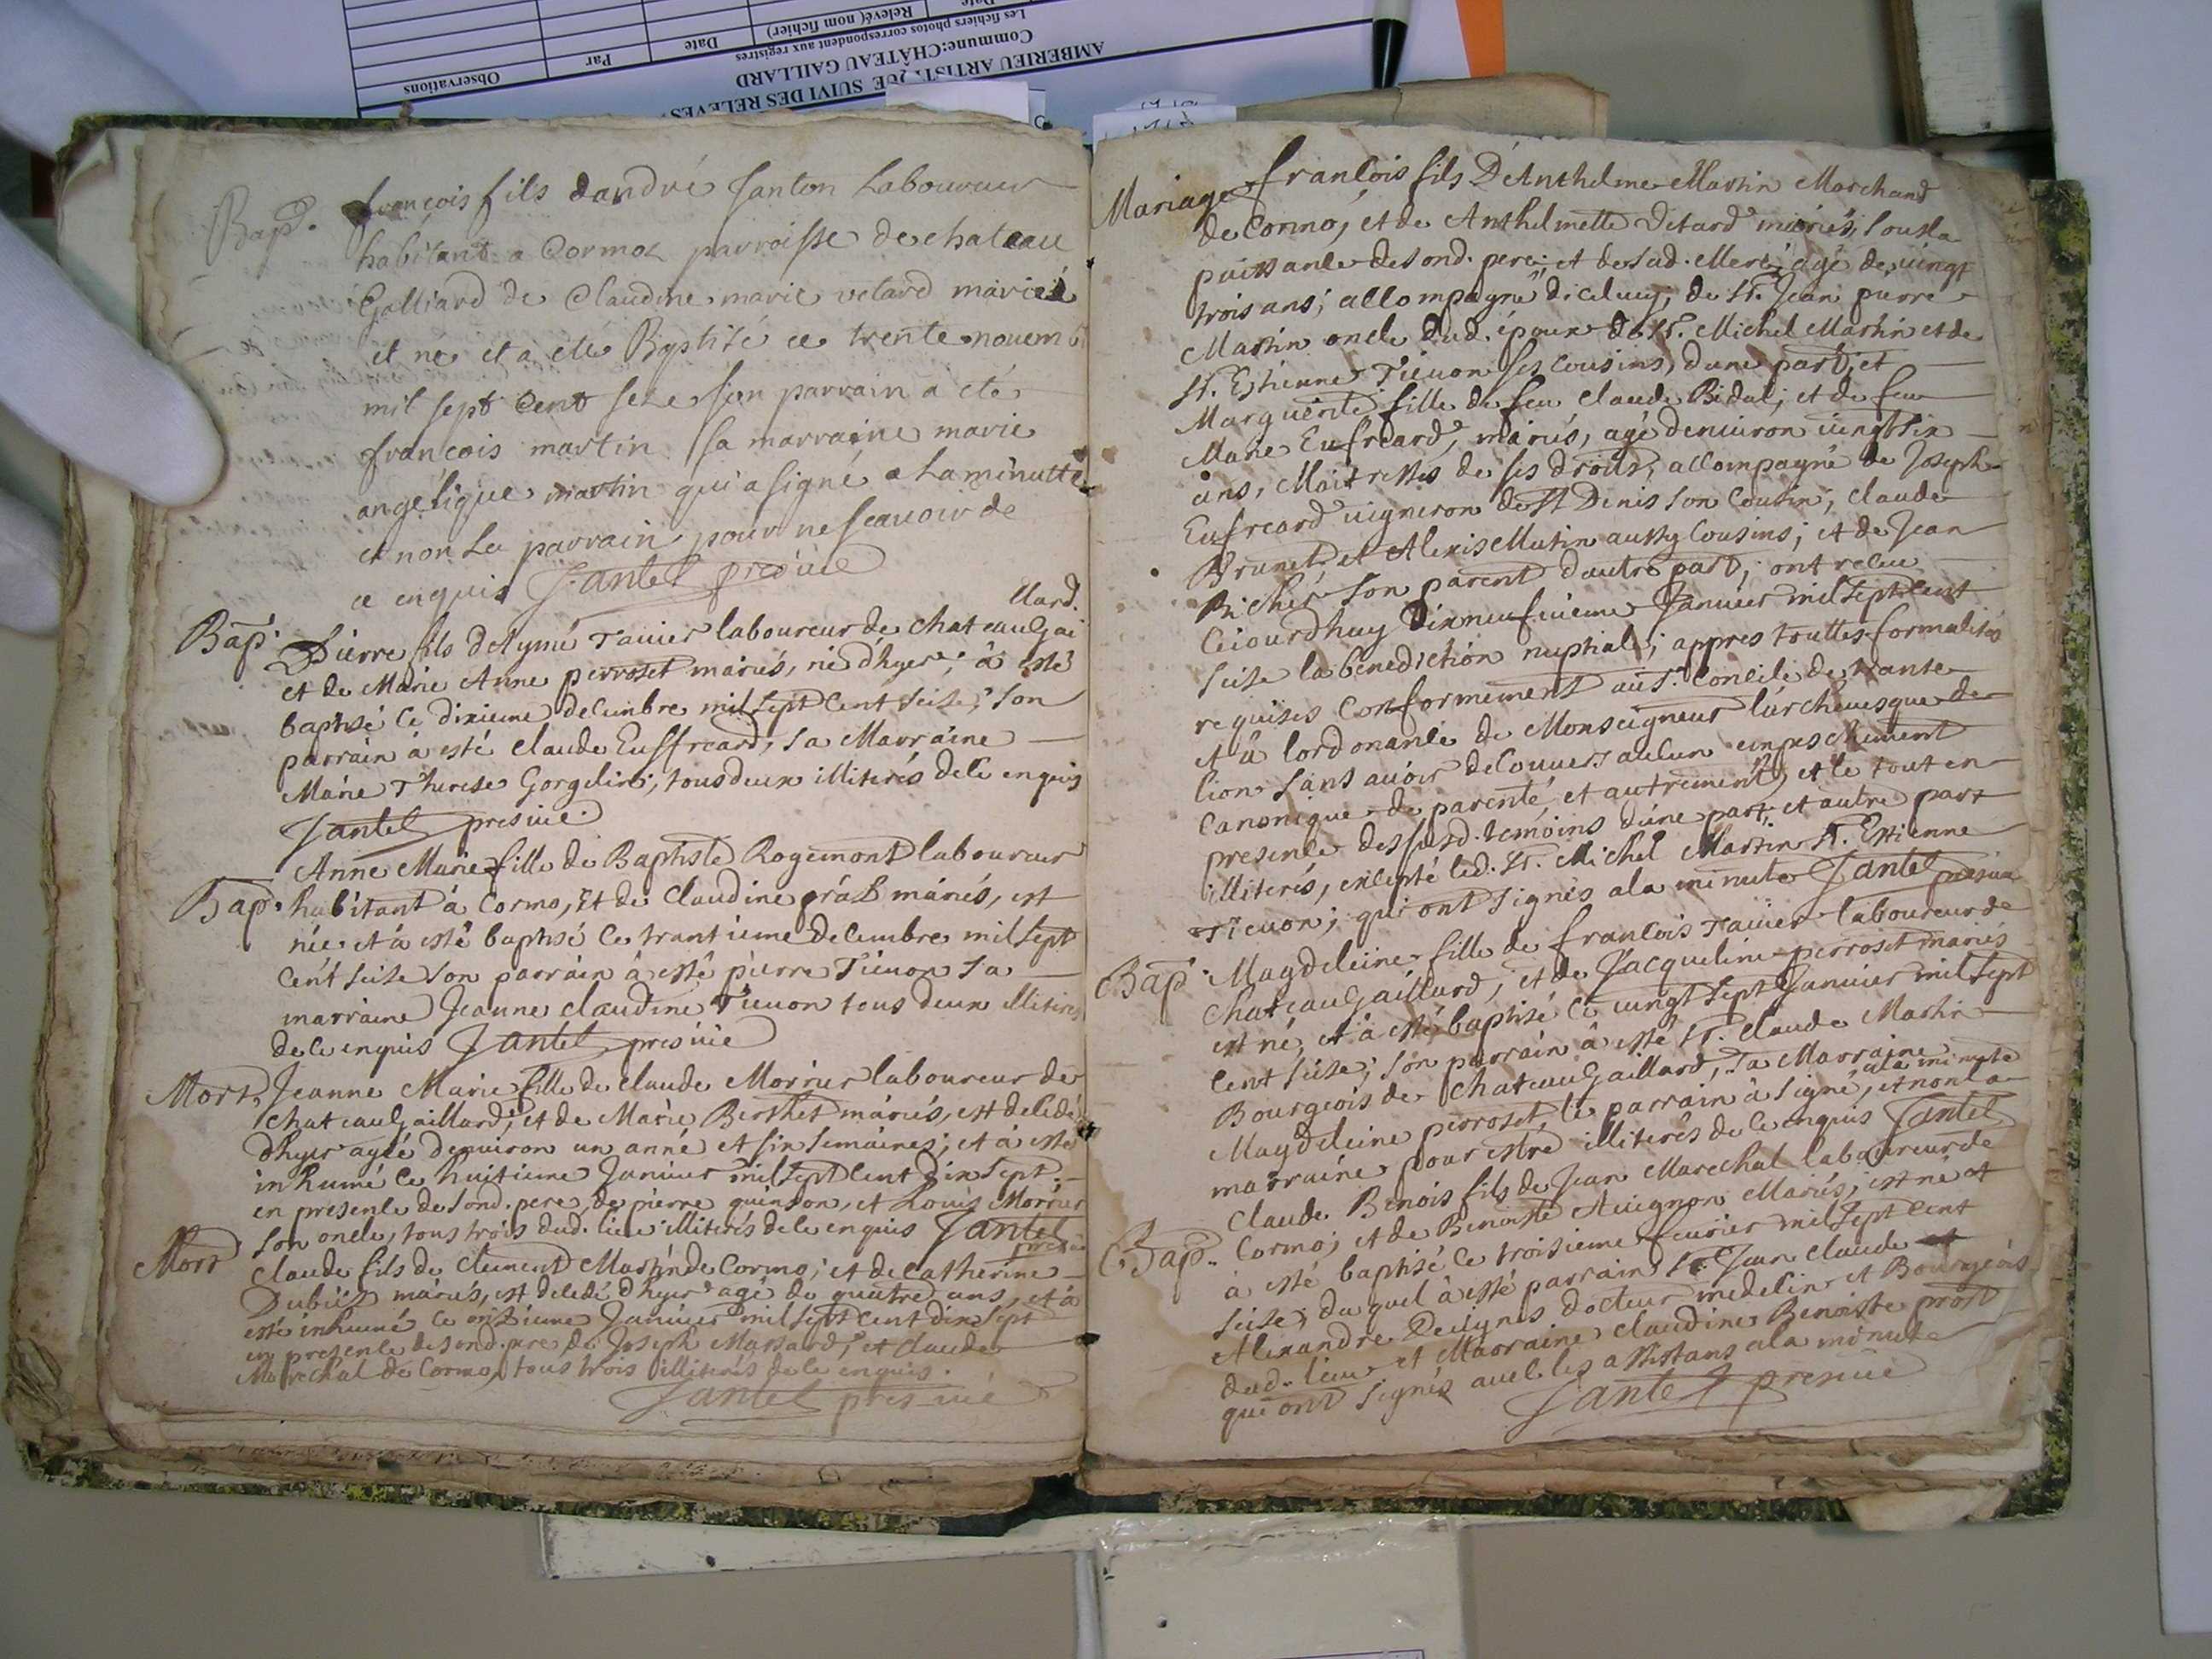 Observations
Par
Date
Relevé (nom fichier)
Date
Les fichiers photos correspondent aux registres
Commune: CHÂTEAU GAILLARD
AMBERIEU SUIVI DES RELEVES
Bap. françois fils dandré Janton Laboureur
habitant a Cormoz parroisse de chateau
Galliard de Claudine marie velard mariés
et né et a eté Baptisé ce trente novemb
mil sept Cent seze son parrain a eté
francois martin sa marraine marie
angelique martin qui a signé a La minutte
et non Le parrain pour ne scavoir de
ce enquis Jantet previe
llard.
Bap. Pierre fils d'Aymé Tavier laboureur de chateaugai
et de Marie Anne perroset mariés, né dhyer; à esté
baptisé ce dixieme decembre mil sept cent seise; son
parrain à esté claude Euffreard, sa Marraine
Marie Therese Gorgelin; tous deux illiterés de ce enquis
Jantet presvié
Anne Marie fille de Baptiste Rogemont laboureur
Bap. habitant à Cormo, Et de Claudine prâb mariés, est
née et à esté baptisé ce trantieme decembre mil sept
cent seise son parrain à esté pierre Tievon sa
marraine Jeanne claudine Tievon tous deux illiterés
de ce enquis Jantet presvié
Mort. Jeanne Marie fille de claude Morrier laboureur de
chateaugaillard, et de Marie Berthet mariés, est decedé
dhyer agée denviron un anné et six semaines; et à esté
inhumé ce huitieme Janvier mil sept cent dix sept
en presence de sond. pere, de pierre quinson, et Louis Morrier
son oncle, tous trois dud. lieu illiterés de ce enquis Jantet
presvié
Mort Claude fils de Clement Martin de Cormo; et de catherine
Dubiez mariés, est decedé dhyer agé de quatre ans, et à
esté inhumé ce onzieme Janvier mil sept cent dix sept
en presence de sond. pere de Joseph Massard, et claude
Marechal de Cormo, tous trois illiterés de ce enquis.
Jantet presvié
Mariage francois fils D'Anthelme Martin Marchand
de Cormo, et de Anthelmette Detard mariés, sous la
puissance de sond. pere, et de sad. Mere, agé de vingt
trois ans; accompagné dicelluy, de Sr. Jean pierre
Martin oncle dud. époux de Sr. Michel Martin et de
Sr. Estienne Tievon ses cousins, dune part, et
Marguerite fille de feu claude Bidal; et de feu
Marie Eufreard, mariés, agé denviron vingt six
ans, Maitresses de ses droits, accompagné de Joseph
Eufreard vigneron de St Denis son cousin, claude
Brunet et Alexis Mutin aussy cousins; et de Jean
Richer son parent dautre part, ont receu
cejourdhuy dixneufvieme Janvier mil sept cent
seise la benediction nuptiale; appres touttes formalités
requises conformement au St. Concile de trante
et à lordonance de Monseigneur l'archevesque de
lion sans avoir decouvert aucun empeschement
canonique de parenté, et autrement, et le tout en
presence des susd. temoins d'une part, et autre part
illiterés, excepté led. Sr. Michel Martin Sr. Estienne
Tievon; qui ont signés a la minute Jantet presvié
Bap. Magdeleine fille de francois Tavier laboureur de
chateaugaillard, et de Jacqueline perroset mariés
est né, et à esté baptisé ce vingt sept Janvier mil sept
cent seise; son parrain à esté Sr. Claude Martin
Bourgeois de chateaugaillard, sa Marraine
a la minute
Magdeleine perroset, le parrain à signé, et non la
marraine pour estre illiterés de ce enquis Jantet
claude Benois fils de Jean Marechal laboureur de
Bap. Cormo; et de Benoiste Avignon Mariés, est né et
à esté baptisé ce troisieme fevrier mil sept cent
seise; duquel à esté parrain Sr. Jean claude
Alexandre Devignes docteur medecin et Bourgeois
dud. lieu et Marraine claudine Benoiste prost
qui ont signés avec les assistans a la minute
Jantet presvié